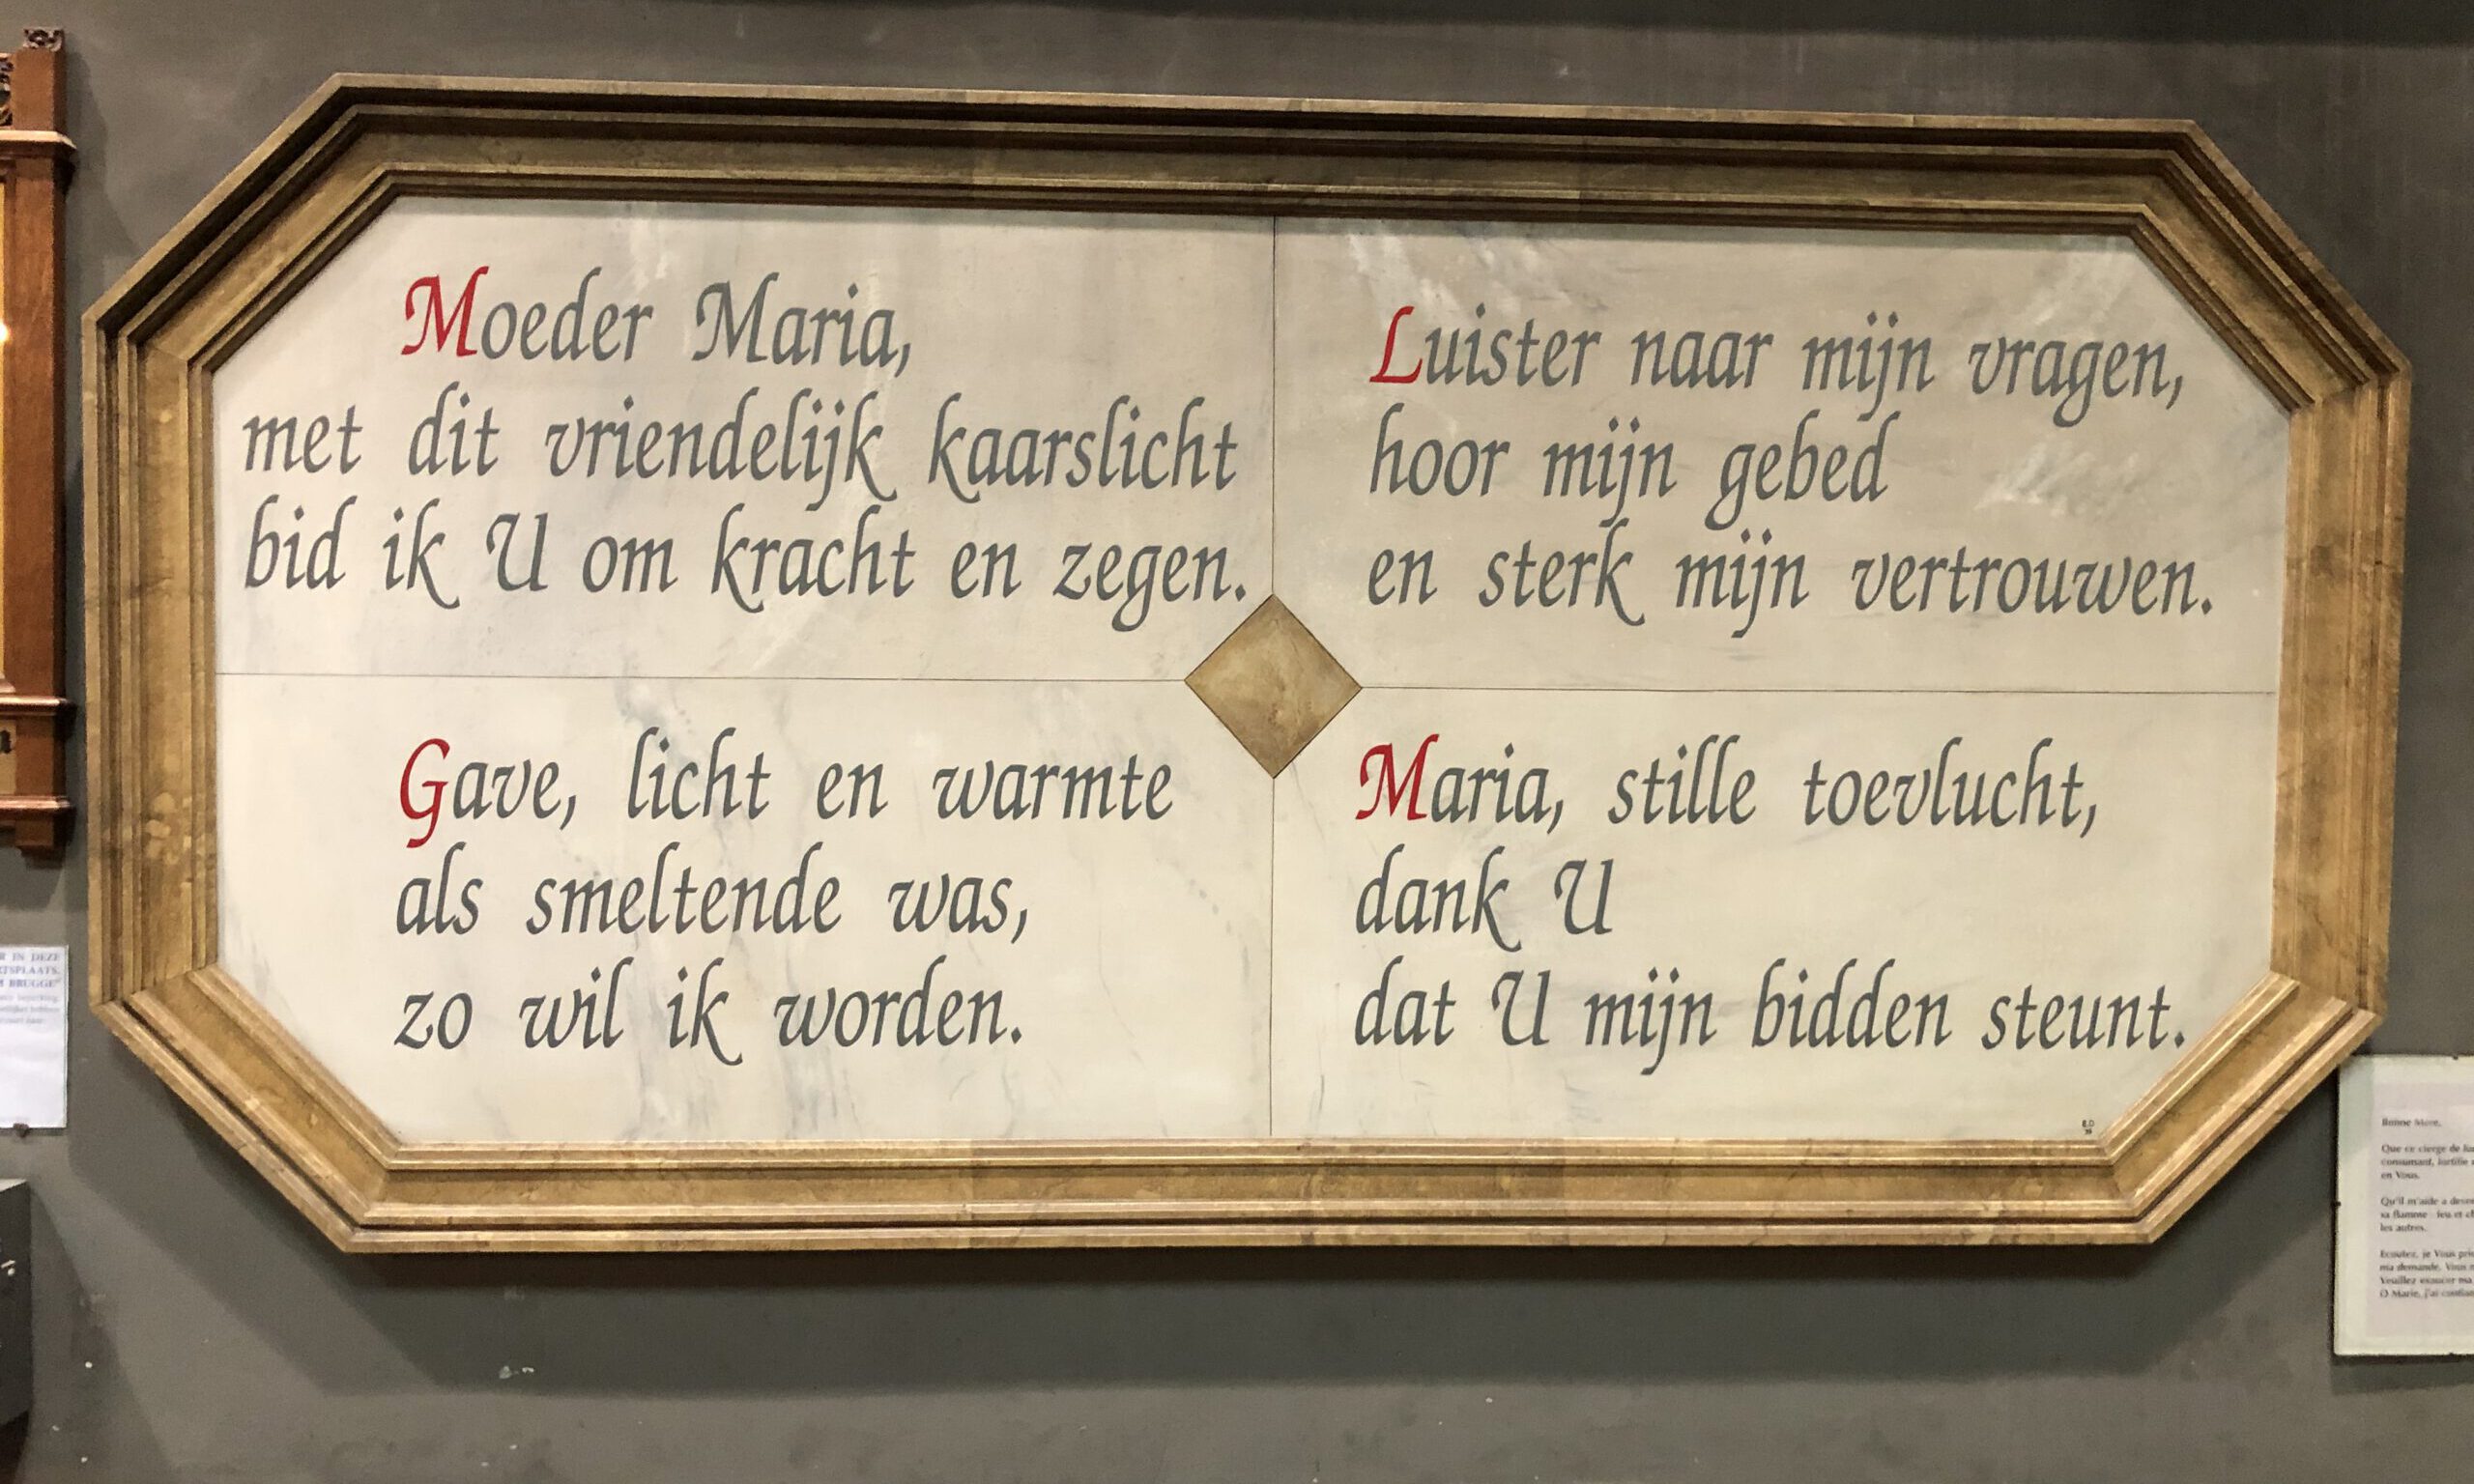 Moeder Maria,
met dit vriendelijk kaarslicht
bid ik U om kracht en zegen.
Luister naar mijn vragen,
hoor mijn gebed
en sterk mijn vertrouwen.
Gave, licht en warmte
als smeltende was,
zo wil ik worden.
Maria, stille toevlucht,
dank U
dat U mijn bidden steunt.
IN DEZE
BRUGGE"
Que ce cierge de
consumant,
en Vous.
Qu'il m'aide a
sa flamme : feu et
les autres.
Ecoutez, je Vous
ma demande. Vous
Veuillez exaucer ma
O Marie, j'ai